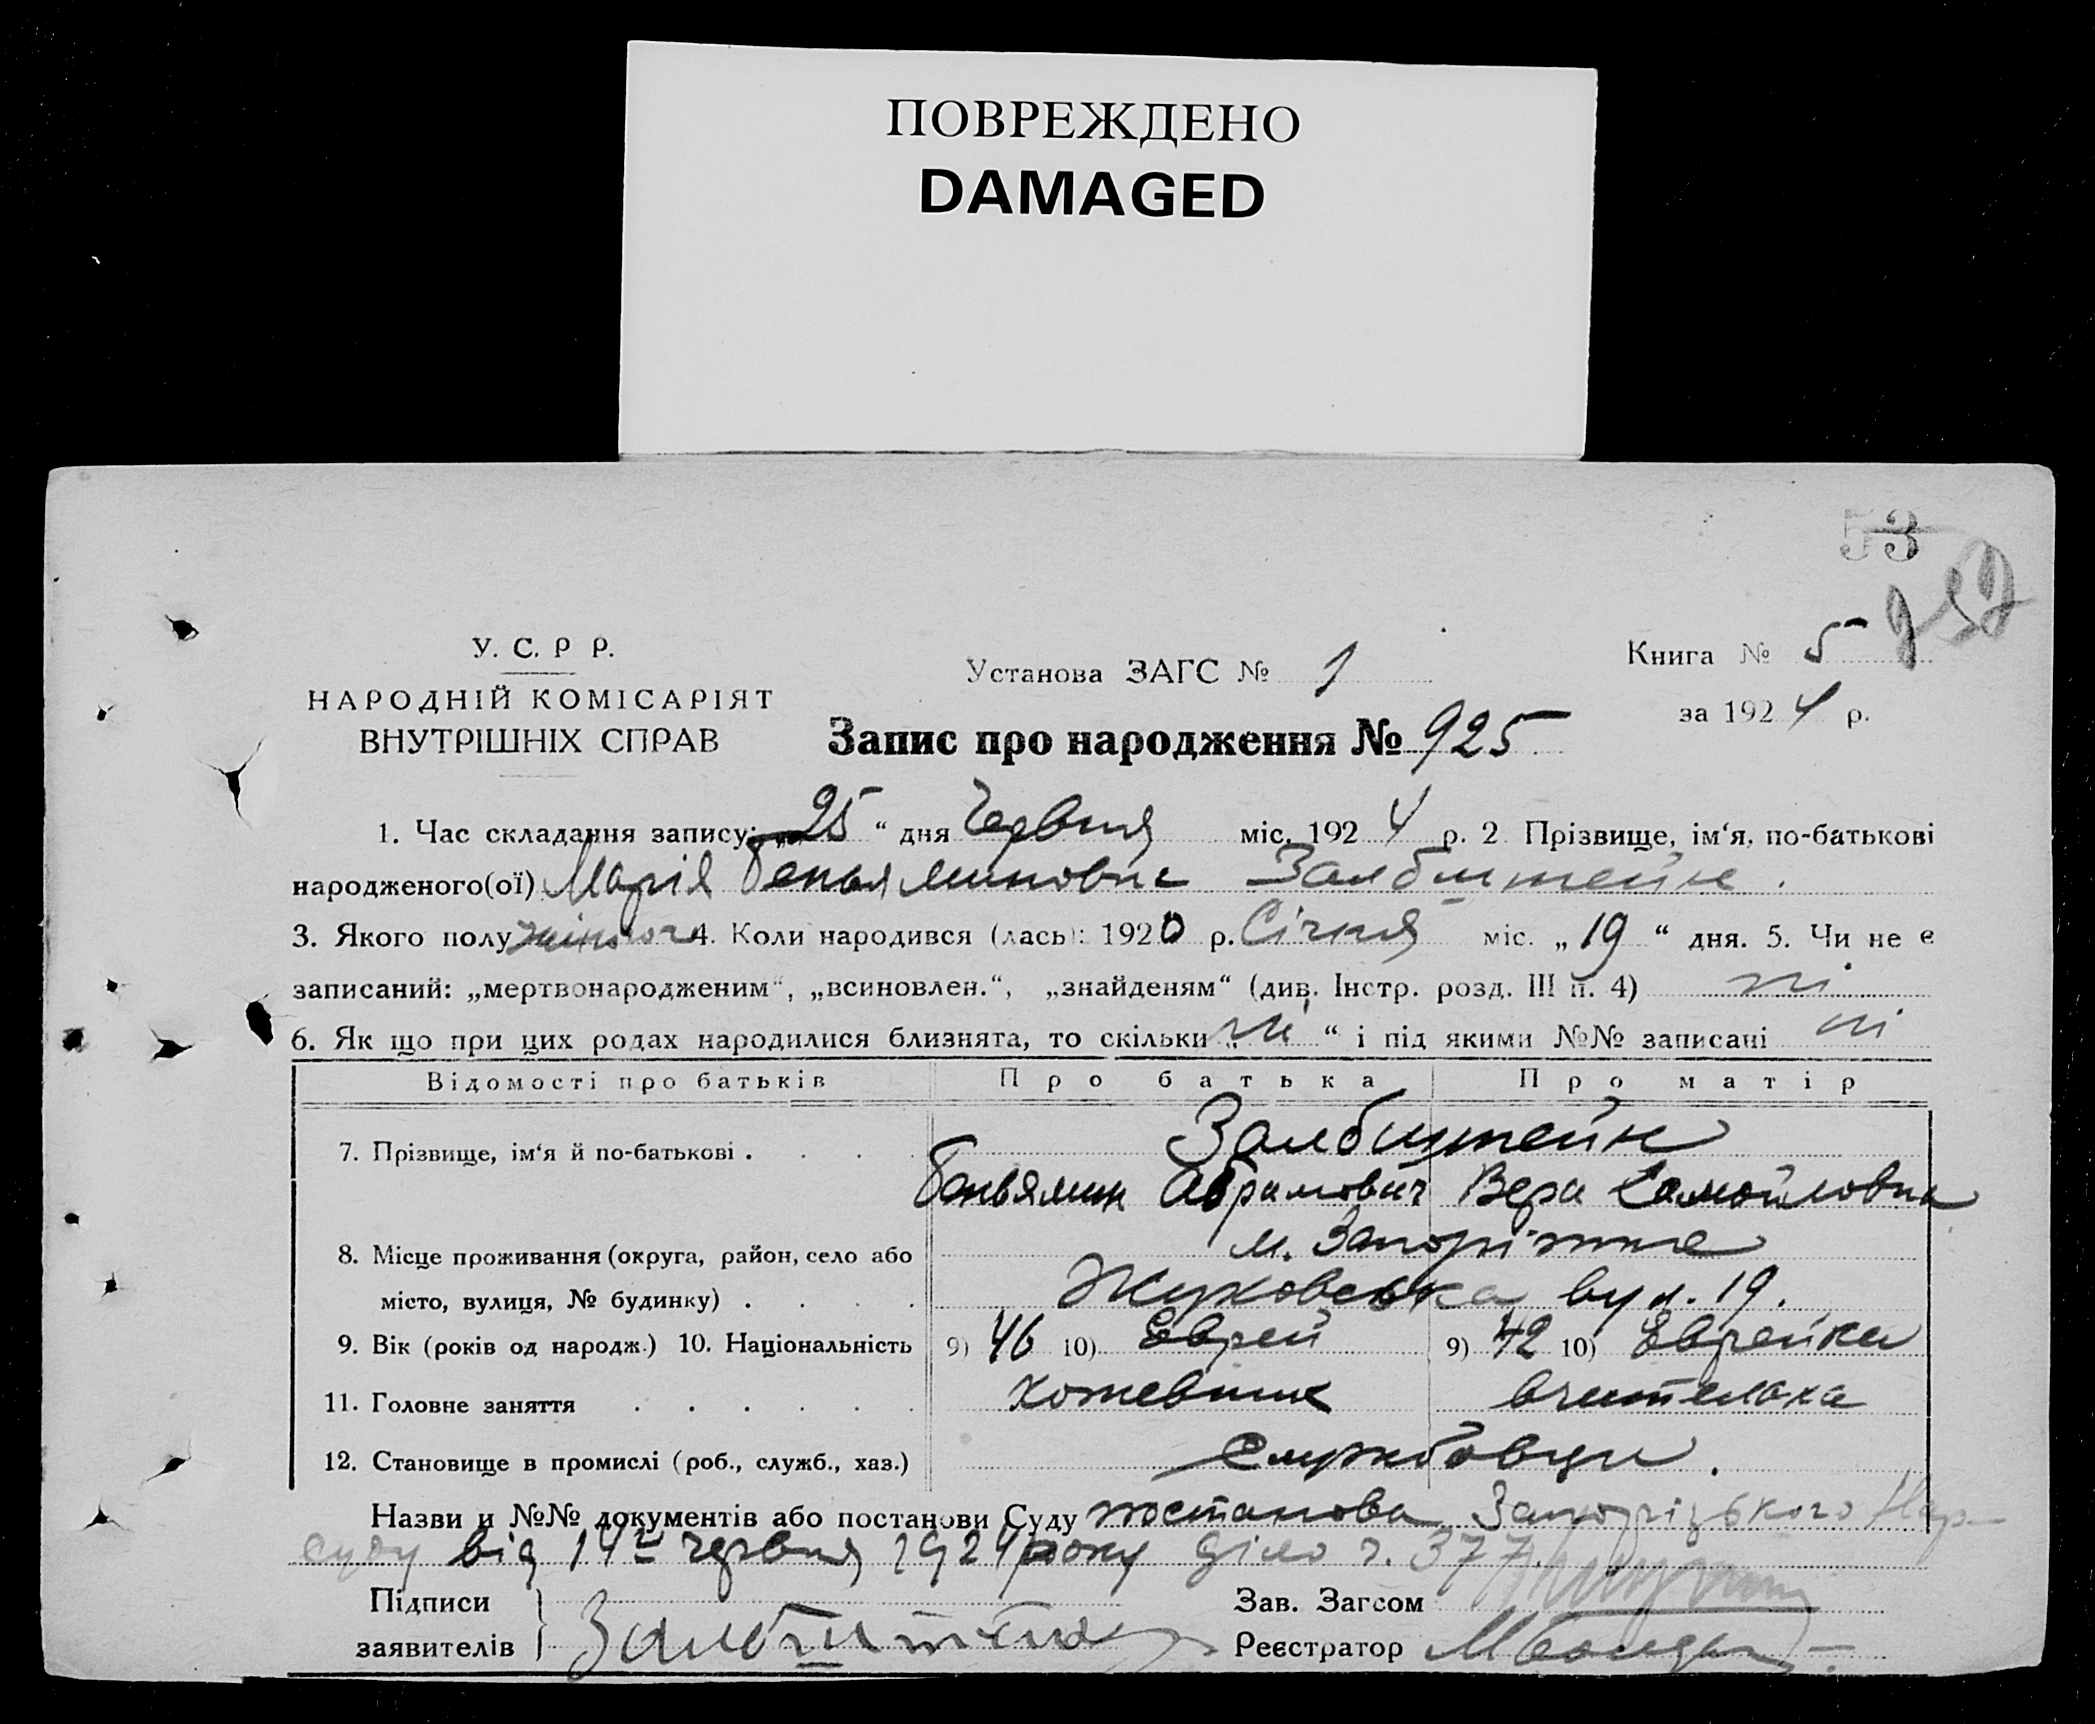 ПОВРЕЖДЕНО
DAMAGED
53
У. С. Р Р.
НАРОДНІЙ КОМІСАРІЯТ
ВНУТРІШНІХ СПРАВ
Установа ЗАГС № 1
Книга № 5
за 1924 р.
Запис про народження № 925
1. Час складання запису: „25“ дня Червня міс. 1924 р. 2 Прізвище, ім‘я, по-батькові
народженого(ої) Марія Беньяминовна Залбштейн.
3. Якого полу жіночого 4. Коли народився (лась): 1920 р. Січня міс. „19“ дня. 5. Чи не є
записаний: „мертвонародженим“, „всиновлен.“, „знайденям“ (див. Інстр. розд. III п. 4) ні
6. Як що при цих родах народилися близнята, то скільки „ні“ і під якими №№ записані ні
Відомості про батьків Про батька Про матір
7. Прізвище, ім‘я й по-батькові . . . . Залбштейн
Беньямин Абрамович Вера Самойловна
8. Місце проживання (округа, район, село або м. Запоріжже
місто, вулиця, № будинку) . . . . Жуковська вул. 19.
9. Вік (років од народж.) 10. Національність 9) 46 10) Еврей 9) 42 10) Еврейка
11. Головне заняття . . . . . . кожевник вчителька
12. Становище в промислі (роб., служб., хаз.) Службовци.
Назви и №№ документів або постанови Суду постанова Запорізького Нар-
суду від 14го червня 1924 року діло ч. 377.
Підписи
заявителів
Зав. Загсом
Реєстратор